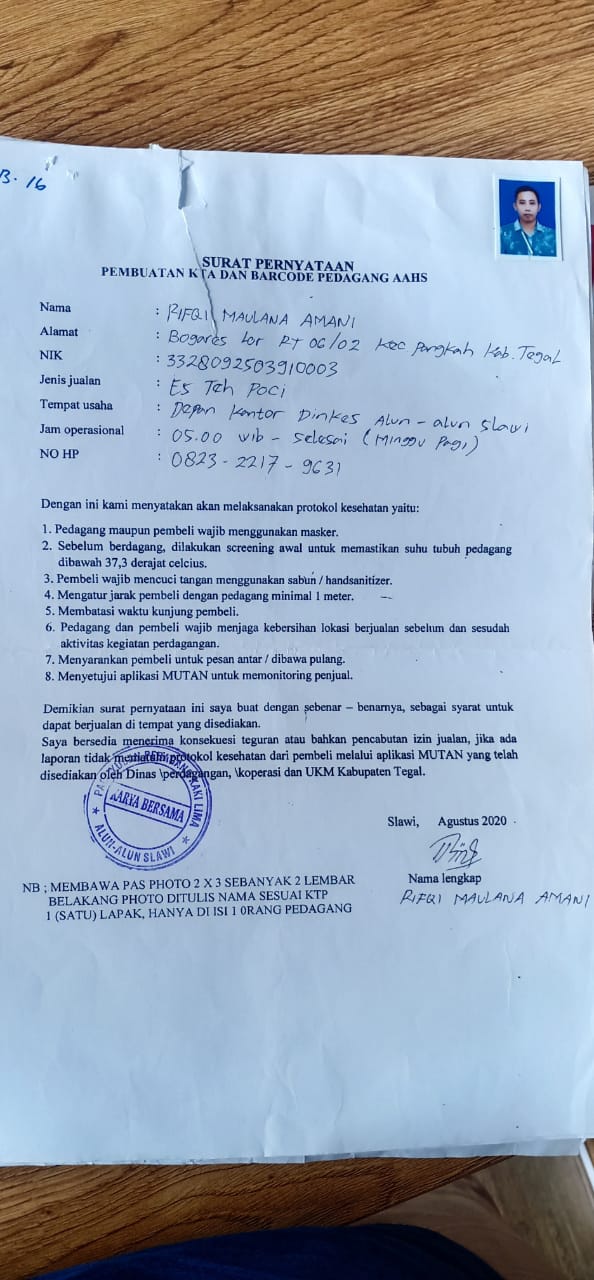 B. 16
SURAT PERNYATAAN
PEMBUATAN KTA DAN BARCODE PEDAGANG AAHS
Nama : RIFQI MAULANA AMANI
Alamat : Bogares lor RT 06/02 Kec Pangkah Kab. Tegal
NIK : 3328092503910003
Jenis jualan : Es Teh Poci
Tempat usaha : Depan Kantor Dinkes Alun - alun Slawi
Jam operasional : 05.00 wib - selesai (Minggu Pagi)
NO HP : 0823 - 2217 - 9631
Dengan ini kami menyatakan akan melaksanakan protokol kesehatan yaitu:
1. Pedagang maupun pembeli wajib menggunakan masker.
2. Sebelum berdagang, dilakukan screening awal untuk memastikan suhu tubuh pedagang
dibawah 37,3 derajat celcius.
3. Pembeli wajib mencuci tangan menggunakan sabun / handsanitizer.
4. Mengatur jarak pembeli dengan pedagang minimal 1 meter.
5. Membatasi waktu kunjung pembeli.
6. Pedagang dan pembeli wajib menjaga kebersihan lokasi berjualan sebelum dan sesudah
aktivitas kegiatan perdagangan.
7. Menyarankan pembeli untuk pesan antar / dibawa pulang.
8. Menyetujui aplikasi MUTAN untuk memonitoring penjual.
Demikian surat pernyataan ini saya buat dengan sebenar – benarnya, sebagai syarat untuk
dapat berjualan di tempat yang disediakan.
Saya bersedia menerima konsekuesi teguran atau bahkan pencabutan izin jualan, jika ada
laporan tidak mentaati protokol kesehatan dari pembeli melalui aplikasi MUTAN yang telah
disediakan oleh Dinas \perdagangan, \koperasi dan UKM Kabupaten Tegal.
KAKI LIMA
KARYA BERSAMA
ALUN-ALUN SLAWI
Slawi, Agustus 2020
Nama lengkap
RIFQI MAULANA AMANI
NB ; MEMBAWA PAS PHOTO 2 X 3 SEBANYAK 2 LEMBAR
BELAKANG PHOTO DITULIS NAMA SESUAI KTP
1 (SATU) LAPAK, HANYA DI ISI 1 0RANG PEDAGANG